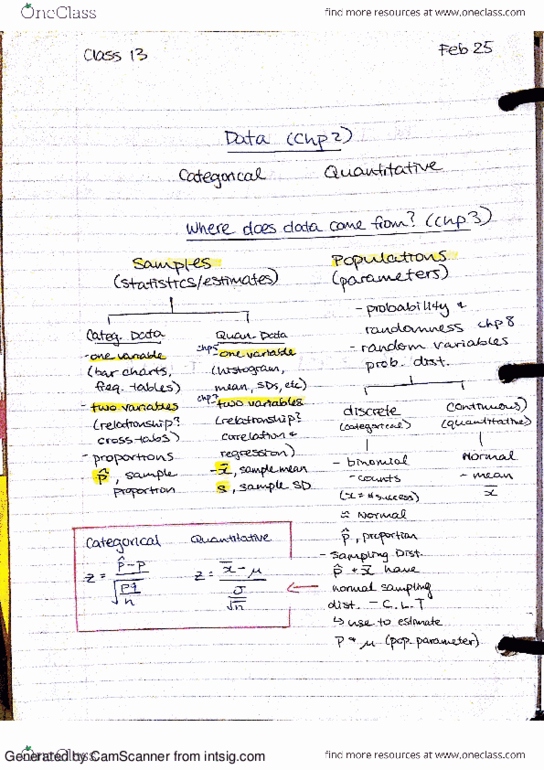 OneClass
find more resources at www.oneclass.com
Class 13
Feb 25
Data (Chp 2)
Categorical Quantitative
Where does data come from? (Chp 3)
Samples
(statistics/estimates)
Categ. Data
- one variable
(bar charts,
freq. tables)
- two variables
(relationship?
cross-tabs)
- proportions
p̂, sample
proportion
Quan. Data
chp5 - one variable
(histogram,
mean, SDs, etc)
chp7 - two variables
(relationship?
correlation &
regression)
- x̄, sample mean
s, sample SD
Populations
(parameters)
- probability &
randomness chp 8
- random variables
prob. dist.
discrete
(categorical)
- binomial
- counts
(x = # success)
≈ Normal
p̂, proportion
(continuous)
(quantitative)
Normal
- mean
x̄
- Sampling Dist.
p̂ & x̄ have
normal sampling
dist. - C.L.T
↳ use to estimate
P & μ (pop. parameter)
Categorical Quantitative
z = p̂ - p / √(pq/n)
z = x̄ - μ / σ/√n
Generated by CamScanner from intsig.com
OneClass
find more resources at www.oneclass.com